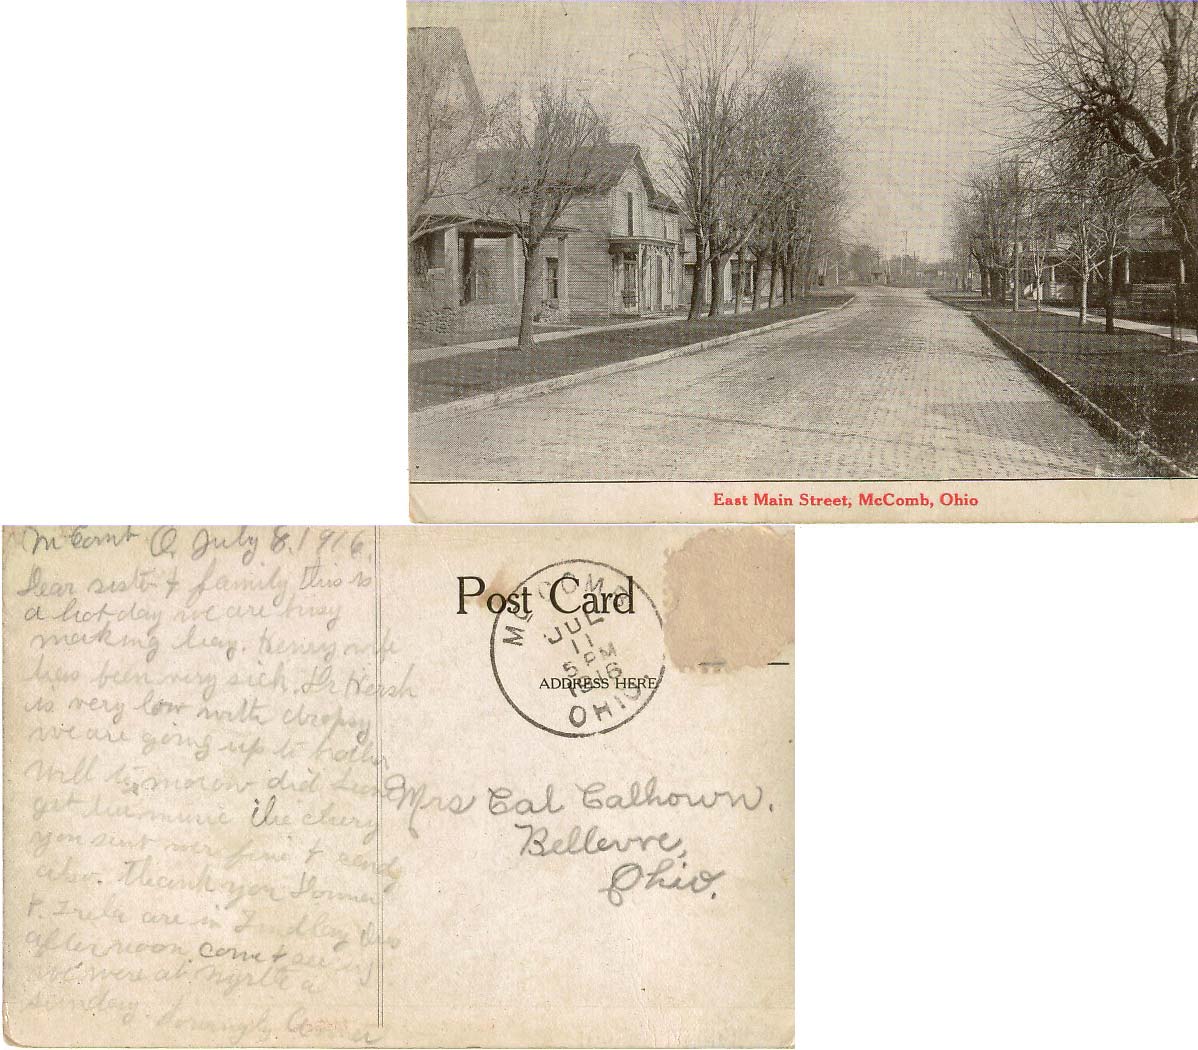 East Main Street, McComb, Ohio
McComb O, July 8. 1916.
Dear sister & family this is
a hot day we are busy
making hay. Henry wife
has been very sick. Dr Hersh
is very low with dropsy
we are going up to
will to morow did
get the the chery
you sent were fine & candy
also. thank you
& are in Findlay this
afternoon. come & see us
we were at Myrtle a
sunday. Lovingly
Post Card
ADDRESS HERE
McCOMB
JUL
11
5 PM
1916
OHIO.
Mrs Cal Calhown.
Bellevve,
Ohio.